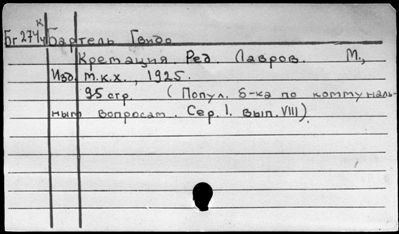 К
Бг 274ч Бартель Гвидо
Кремация. Ред. Лавров. М.,
Изд. М.К.Х., 1925.
95 стр. (Попул. б-ка по коммуналь-
ным вопросам. Сер. I. Вып. VIII).